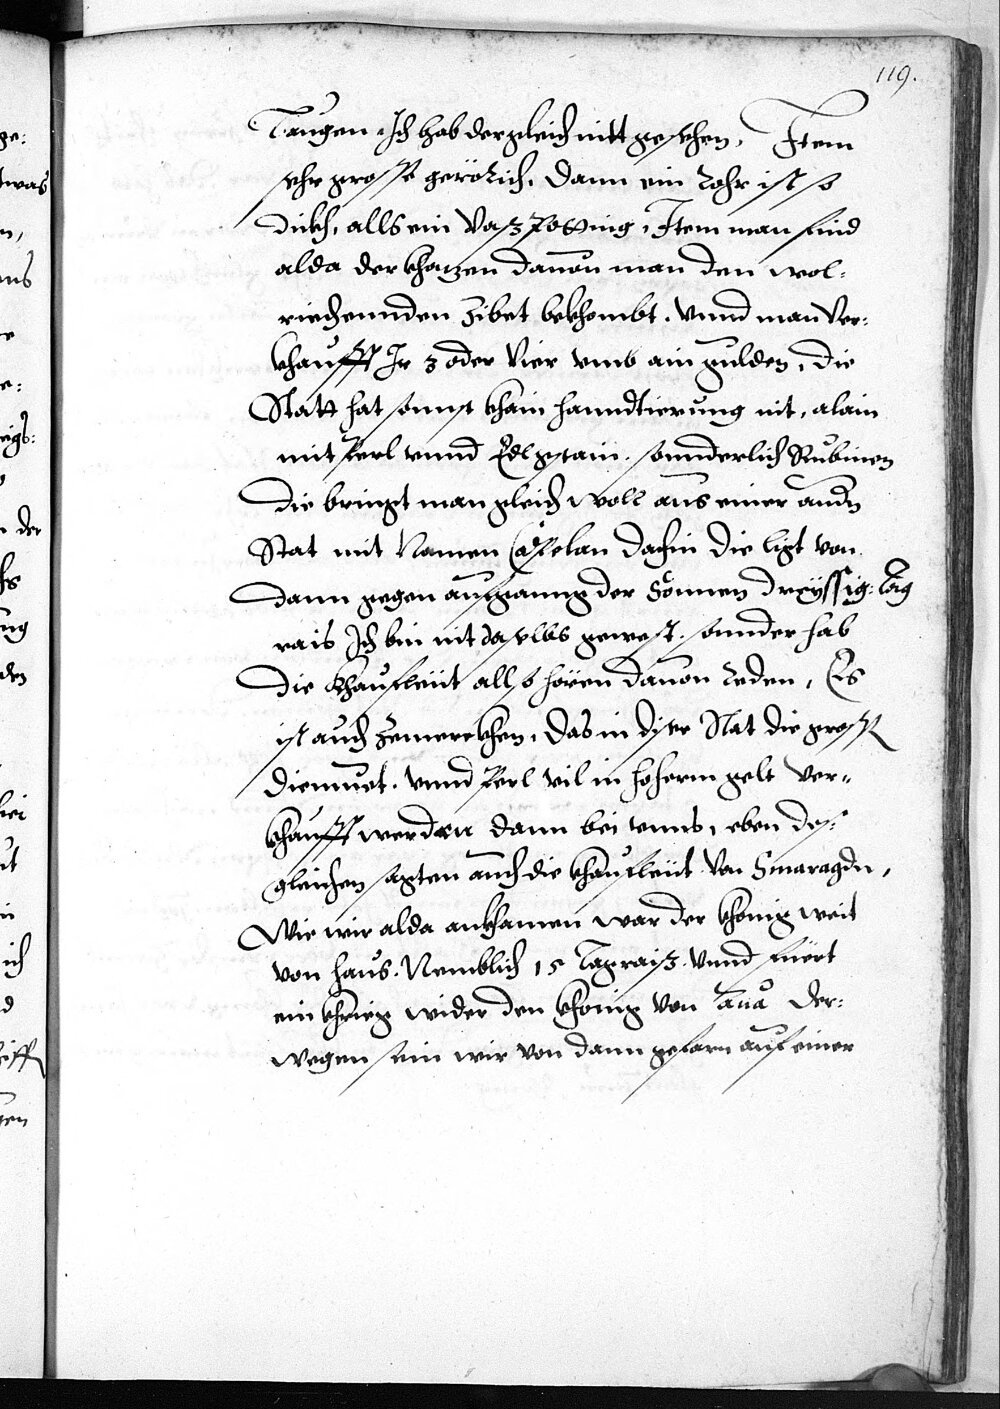 119.
Taugen. Ich hab dergleich nitt gesehen, Item
sehr grosse geröRich, dann ein Rohr ist so
dickh, alls ein Vasz Potting, Item man find
alda der khatzen dauon man den wol=
riechennden Zibet bekhombt. vnnd man ver=
khaufft Ir 3 oder vier vmb ain gulden, die
Statt hat sonnst khain hanndtierung nit, alain
mit Perl vnnd Edlgstain. sonnderlich Rubinen
die bringt man gleich woll aus einer andn
Stat mit Namen Capelan dahin die ligt von
dann gegen aufganng der Sonnen dreyssig: tag
rais Ich bin nit daselbs gewest. sonnder hab
die khaufleüt allso hören dauon Reden, Es
ist auch Zemerckhen, das in diser Stat die gross
diemuet. vnnd Perl vil in hoherm gelt ver=
khaufft werden dann bei vnns, eben des=
gleichen sagten auch die khaufleüt von Smaragdn,
Wie wir alda ankhamen war der khönig weit
von haus. Nemblich 15 Tagraisz. vnnd füert
ein khrieg wider den khönig von Aua der=
wegen sein wir von dann gefarn auf einer

ge:
etwas
ns
der
den
ich